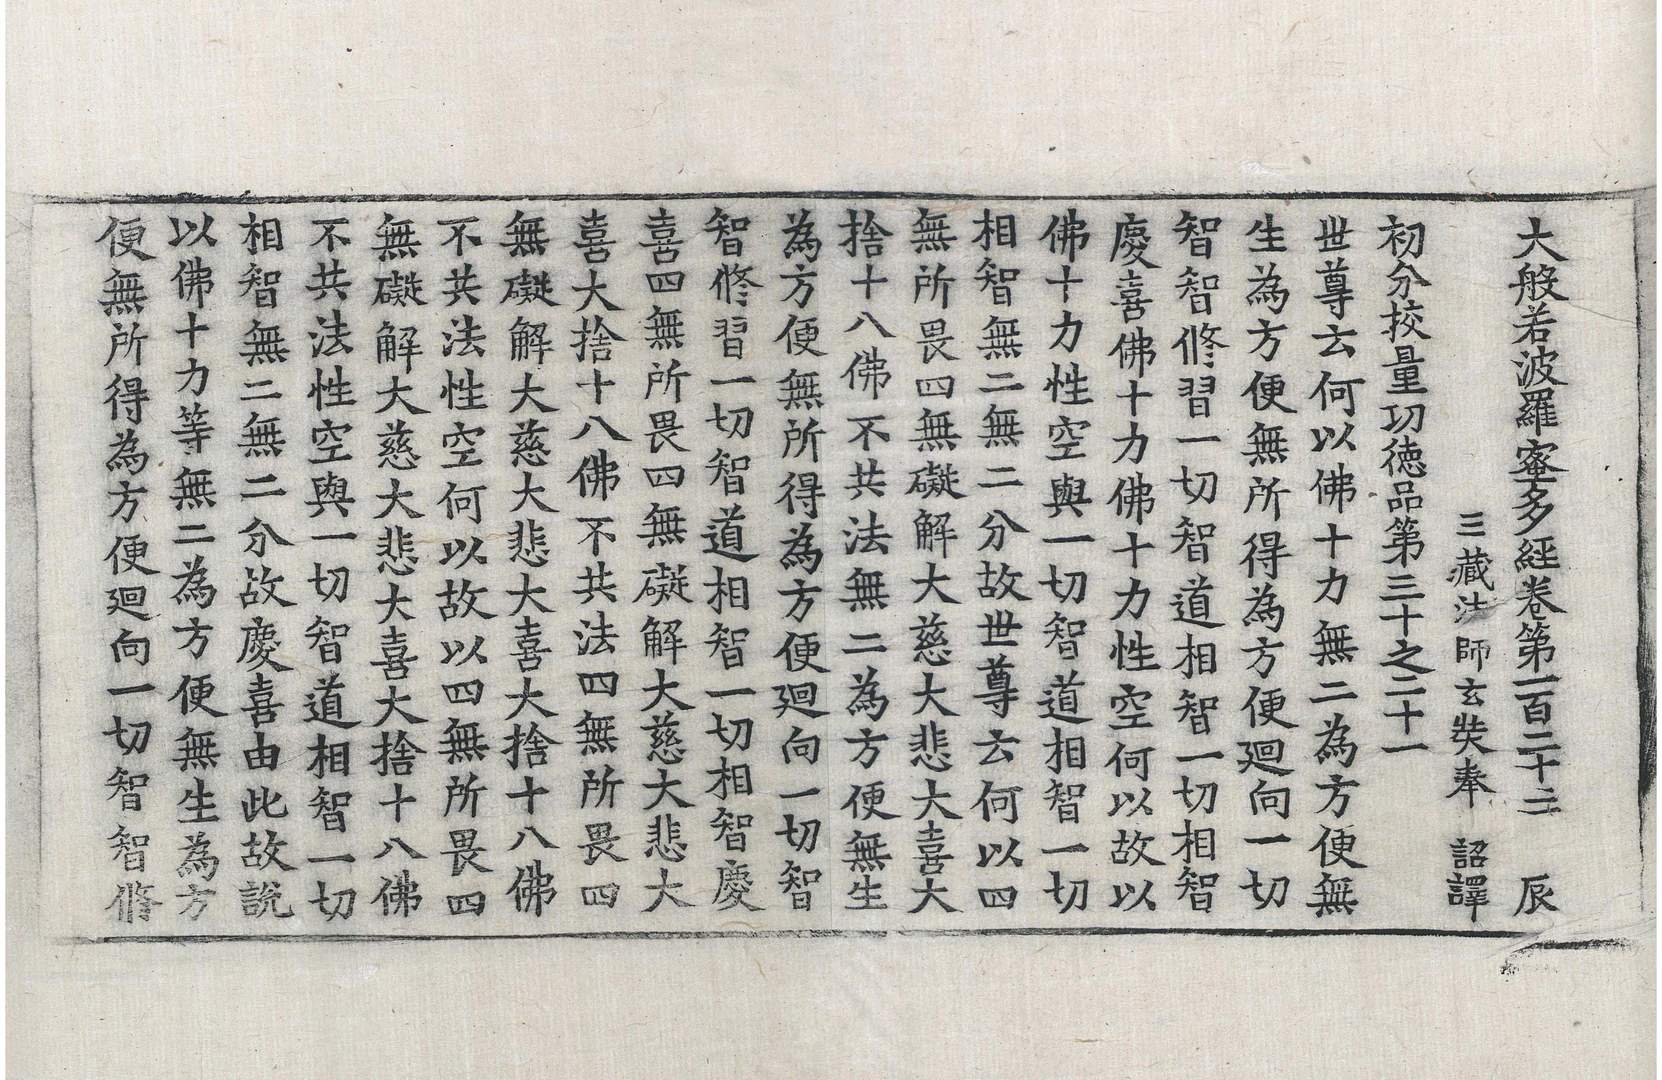 大般若波羅蜜多經卷第一百二十二　辰
三藏法師玄奘奉　詔譯
初分挍量功德品第三十之二十一
世尊云何以佛十力無二為方便無
生為方便無所得為方便迴向一切
智智修習一切智道相智一切相智
慶喜佛十力佛十力性空何以故以
佛十力性空與一切智道相智一切
相智無二無二分故世尊云何以四
無所畏四無礙解大慈大悲大喜大
捨十八佛不共法無二為方便無生
為方便無所得為方便迴向一切智
智修習一切智道相智一切相智慶
喜四無所畏四無礙解大慈大悲大
喜大捨十八佛不共法四無所畏四
無礙解大慈大悲大喜大捨十八佛
不共法性空何以故以四無所畏四
無礙解大慈大悲大喜大捨十八佛
不共法性空與一切智道相智一切
相智無二無二分故慶喜由此故說
以佛十力等無二為方便無生為方
便無所得為方便迴向一切智智修